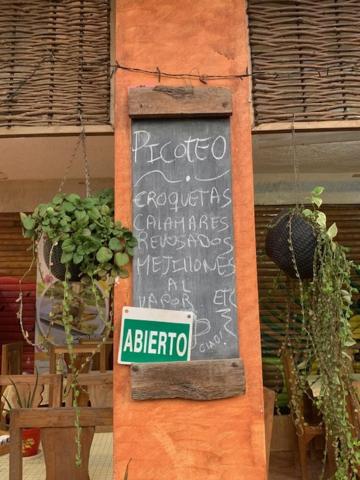 PICOTEO
CROQUETAS
CALAMARES
REVUSADOS
MEJILLONES
AL
VAPOR ETC
CIAO!
ABIERTO